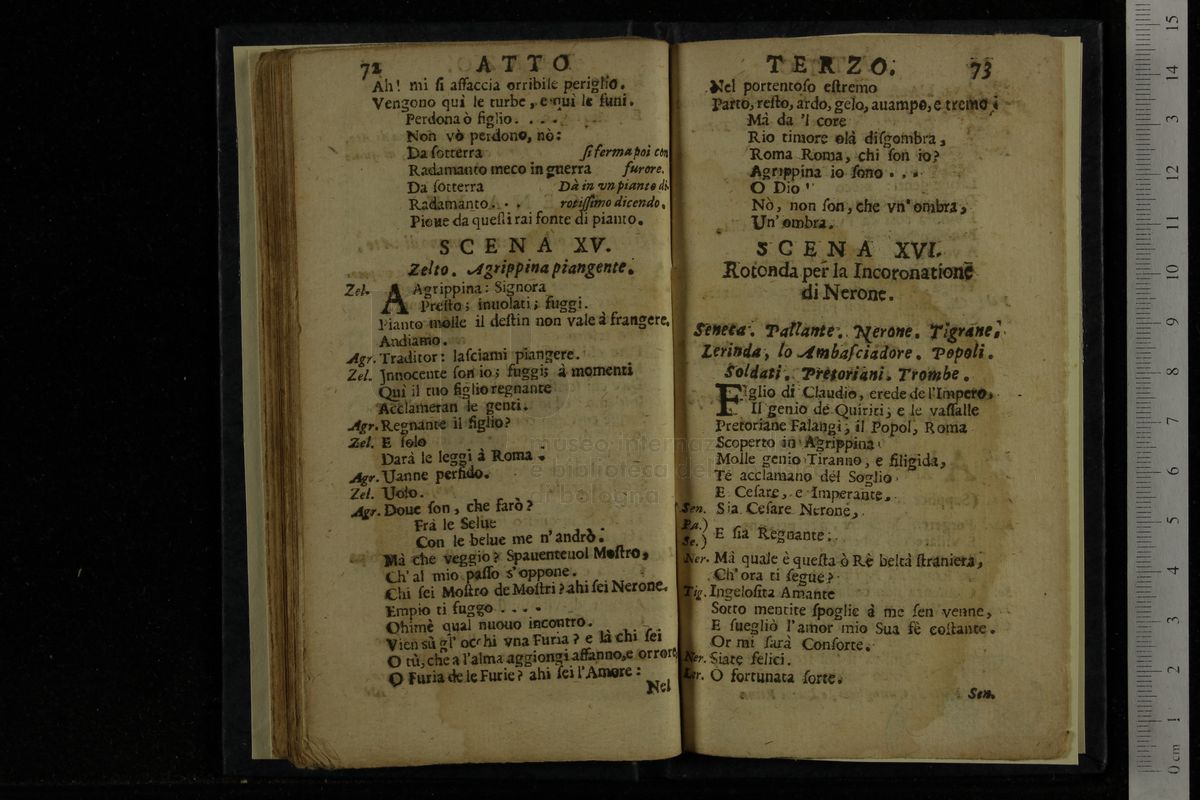 72 ATTO
Ah! mi ſi affaccia orribile periglio.
Vengono qui le turbe, e qui le funi.
Perdona ò figlio. . . .
Non vò perdono, nò:
Da ſotterra ſi ferma poi con
Radamanto meco in guerra furore.
Da ſotterra Dà in vn pianto di-
Radamanto. . . rotiſſimo dicendo.
Pioue da queſti rai fonte di pianto.
SCENA XV.
Zelto. Agrippina piangente.
Zel. AAgrippina: Signora
Preſto; inuolati; fuggi.
Pianto molle il deſtin non vale à frangere.
Andiamo.
Agr. Traditor: laſciami piangere.
Zel. Jnnocente ſon io; fuggi; à momenti
Qui il tuo figlio regnante
Acclameran le genti.
Agr. Regnante il figlio?
Zel. E ſolo
Darà le leggi à Roma.
Agr. Uanne perfido.
Zel. Uolo.
Agr. Doue ſon, che farò?
Frà le Selue
Con le belue me n'andrò.
Mà che veggio? Spauenteuol Moſtro,
Ch'al mio paſſo s'oppone.
Chi ſei Moſtro de Moſtri? ahi ſei Nerone.
Empio ti fuggo . . . .
Ohimè qual nuouo incontro.
Vien sù gl'occhi vna Furia? e là chi ſei
O tù, che a l'alma aggiongi affanno, e orrore
O Furia de le Furie? ahi ſei l'Amore:
Nel
TERZO. 73
Nel portentoſo eſtremo
Parto, reſto, ardo, gelo, auampo, e tremo;
Mà da 'l core
Rio timore olà diſgombra,
Roma Roma, chi ſon io?
Agrippina io ſono . . .
O Dio
Nò, non ſon, che vn'ombra,
Un'ombra.
SCENA XVI.
Rotonda per la Incoronatione
di Nerone.
Seneca. Pallante. Nerone. Tigrane.
Lerinda, lo Ambaſciadore. Popoli.
Soldati. Pretoriani. Trombe.
FIglio di Claudio, erede de l'Impero,
Il genio de Quiriti; e le vaſſalle
Pretoriane Falangi, il Popol, Roma
Scoperto in Agrippina
Molle genio Tiranno, e filigida,
Té acclamano del Soglio
E Ceſare, e Imperante.
Sen. Sia Ceſare Nerone,
Pa.)
Se.) E ſia Regnante.
Ner. Mà quale è queſta ò Rè beltà ſtraniera,
Ch'ora ti ſegue?
Tig. Ingeloſita Amante
Sotto mentite ſpoglie à me ſen venne,
E ſuegliò l'amor mio Sua fè coſtante.
Or mi farà Conſorte.
Ner. Siate felici.
Ler. O fortunata ſorte.
Sen.
museo internaz
e biblioteca del
di bologna
0 cm 1 2 3 4 5 6 7 8 9 10 11 12 13 14 15